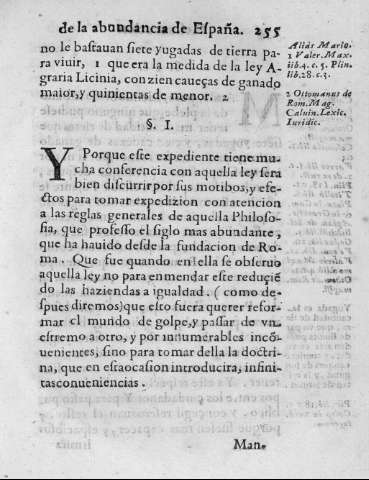 de la abundancia de España. 255
no le bastauan siete yugadas de tierra pa
ra viuir, 1 que era la medida de la ley A
graria Licinia, con zien caueças de ganado
maior, y quinientas de menor. 2
Aliàs Mario.
1 Valer. Max.
lib. 4. c. 5. Plin.
lib. 28. c. 3.
2 Ottomanus de
Rom. Mag.
Caluin. Lexic.
Iuridic.
§. I.
Y Porque este expediente tiene mu
cha conferencia con aquella ley sera
bien discurrir por sus motibos, y efe
ctos para tomar expedizion con atencion
a las reglas generales de aquella Philoso-
fia, que professo el siglo mas abundante,
que ha hauido desde la fundacion de Ro-
ma. Que fue quando en ella se obseruo
aquella ley no para enmendar este reduçiẽ
do las haziendas a igualdad. (como de-
spues diremos) que esto fuera querer refor
mar el mundo de golpe, y passar de vn
estremo a otro, y por innumerables incõ
uenientes, sino para tomar della la doctri
na, que en esta ocasion introducira, infini
tas conueniencias.
Man-